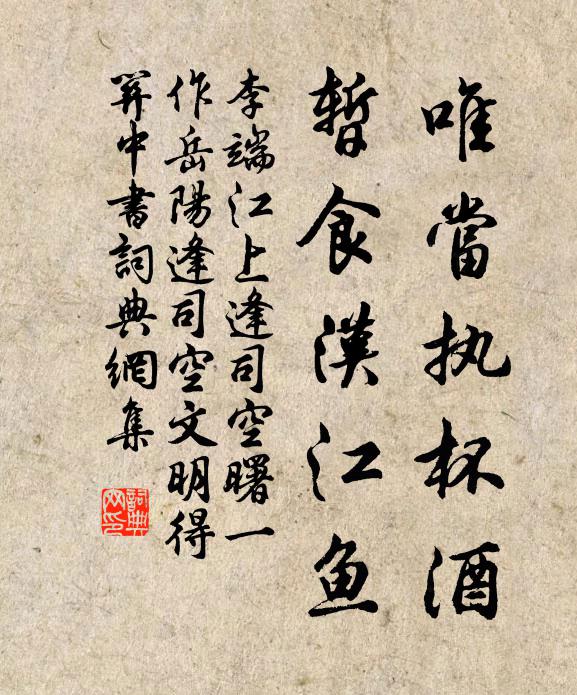 唯當执杯酒
暫食漢江鱼
李端江上逢司空曙一
作岳陽逢司空文明得
關中書詞典網集
詞典网印